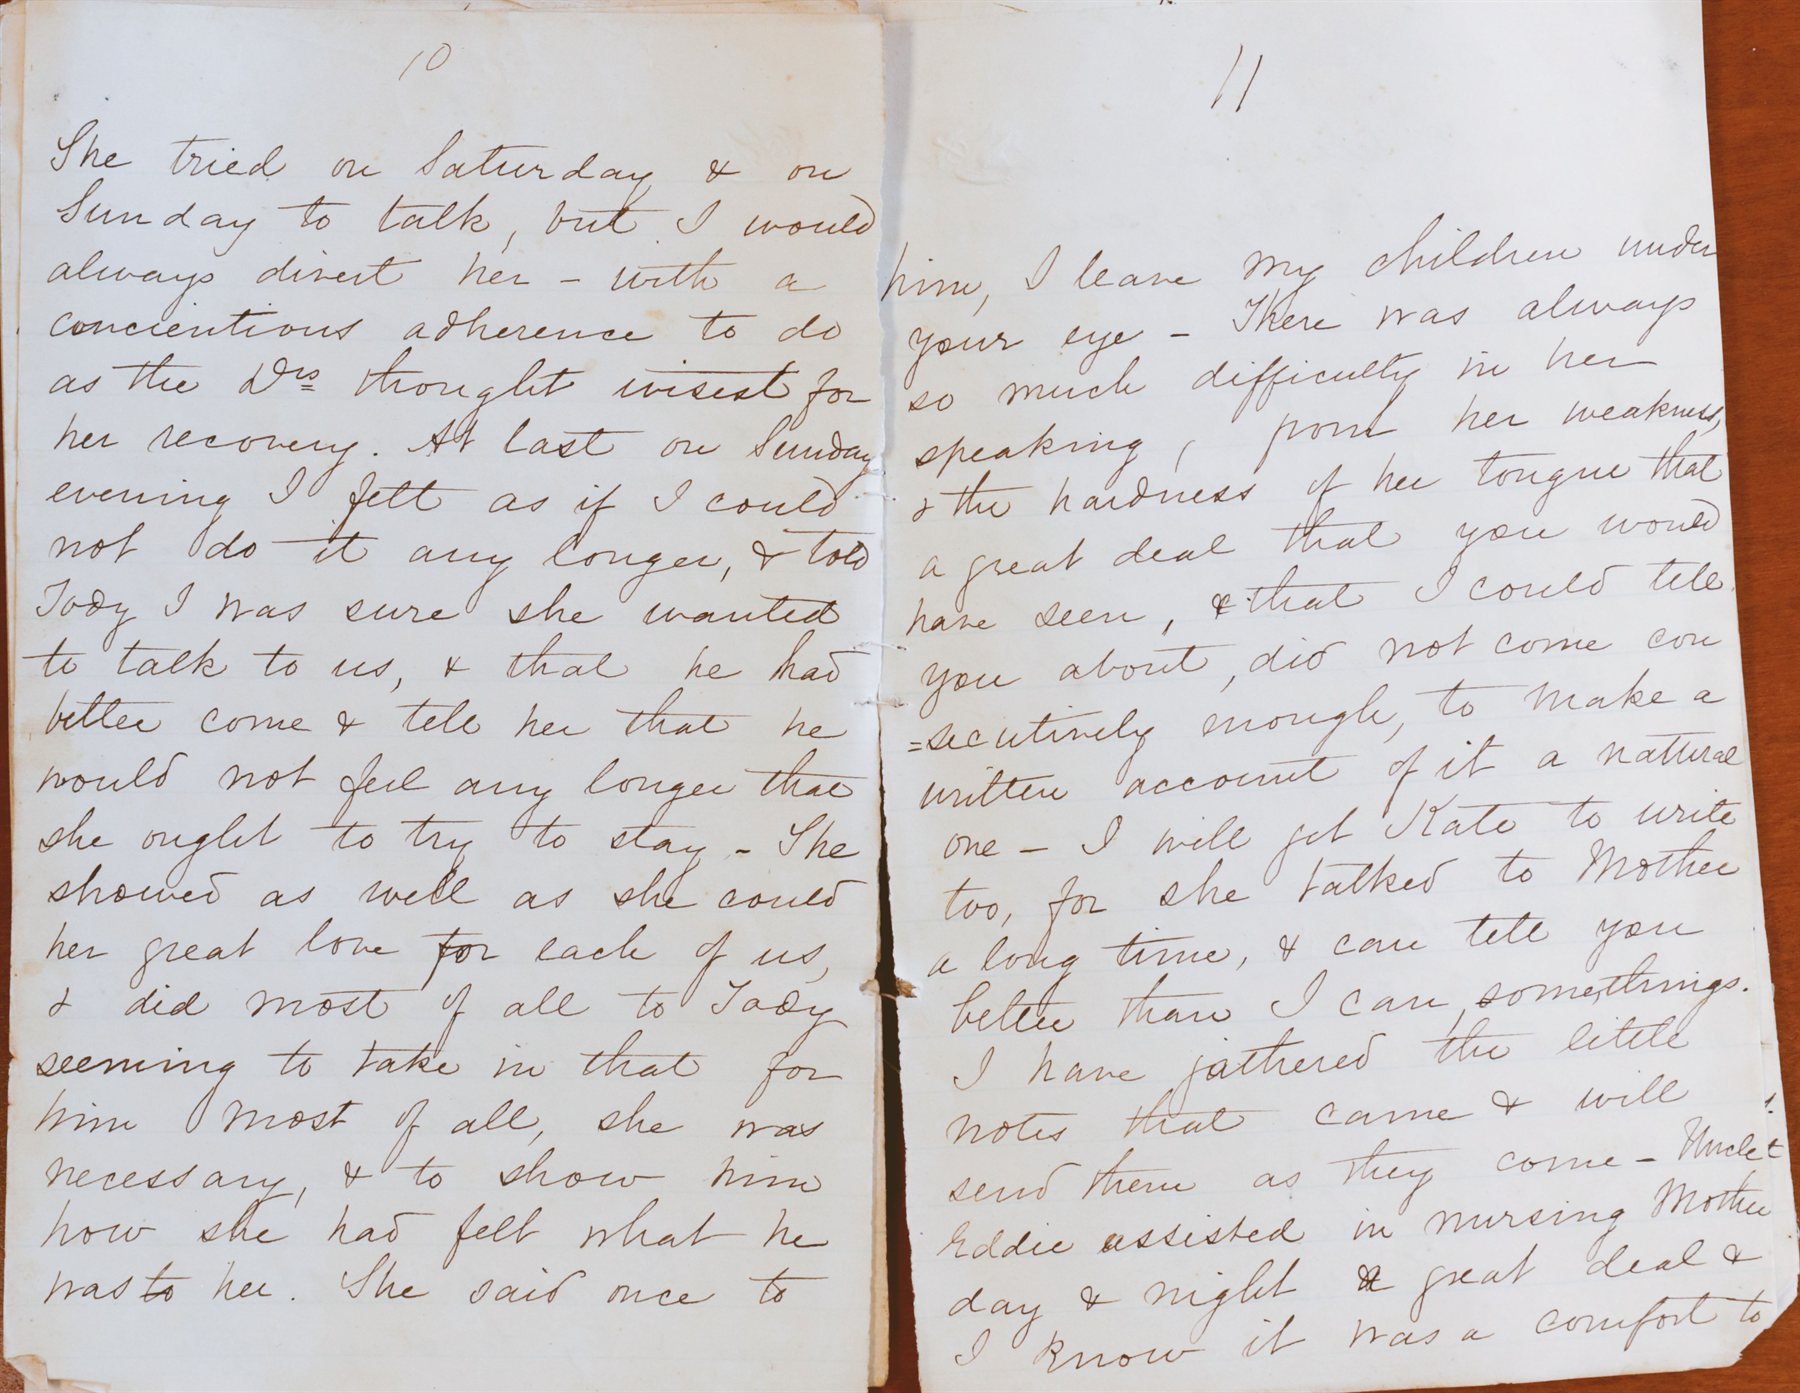 10
She tried on Saturday & on
Sunday to talk, but I would
always divert her - with a
concientious adherence to do
as the Drs thought wisest for
her recovery. At last on Sunday
evening I felt as if I could
not do it any longer, & told
Tody I was sure she wanted
to talk to us, & that he had
better come & tell her that he
would not feel any longer that
she ought to try to stay - She
showed as well as she could
her great love for each of us,
& did most of all to Tody
seeming to take in that for
him most of all, she was
necessary, & to show him
how she had felt what he
was to her. She said once to
11
him, I leave my children under
your eye - There was always
so much difficulty in her
speaking, from her weakness,
& the hardness of her tongue that
a great deal that you would
have seen, & that I could tell
you about, did not come con
=secutively enough, to make a
written account of it a natural
one - I will get Kate to write
too, for she talked to Mother
a long time, & can tell you
better than I can, some things.
I have gathered the little
notes that came & will
send them as they come - Uncle
Eddie assisted in nursing Mother
day & night a great deal &
I know it was a comfort to